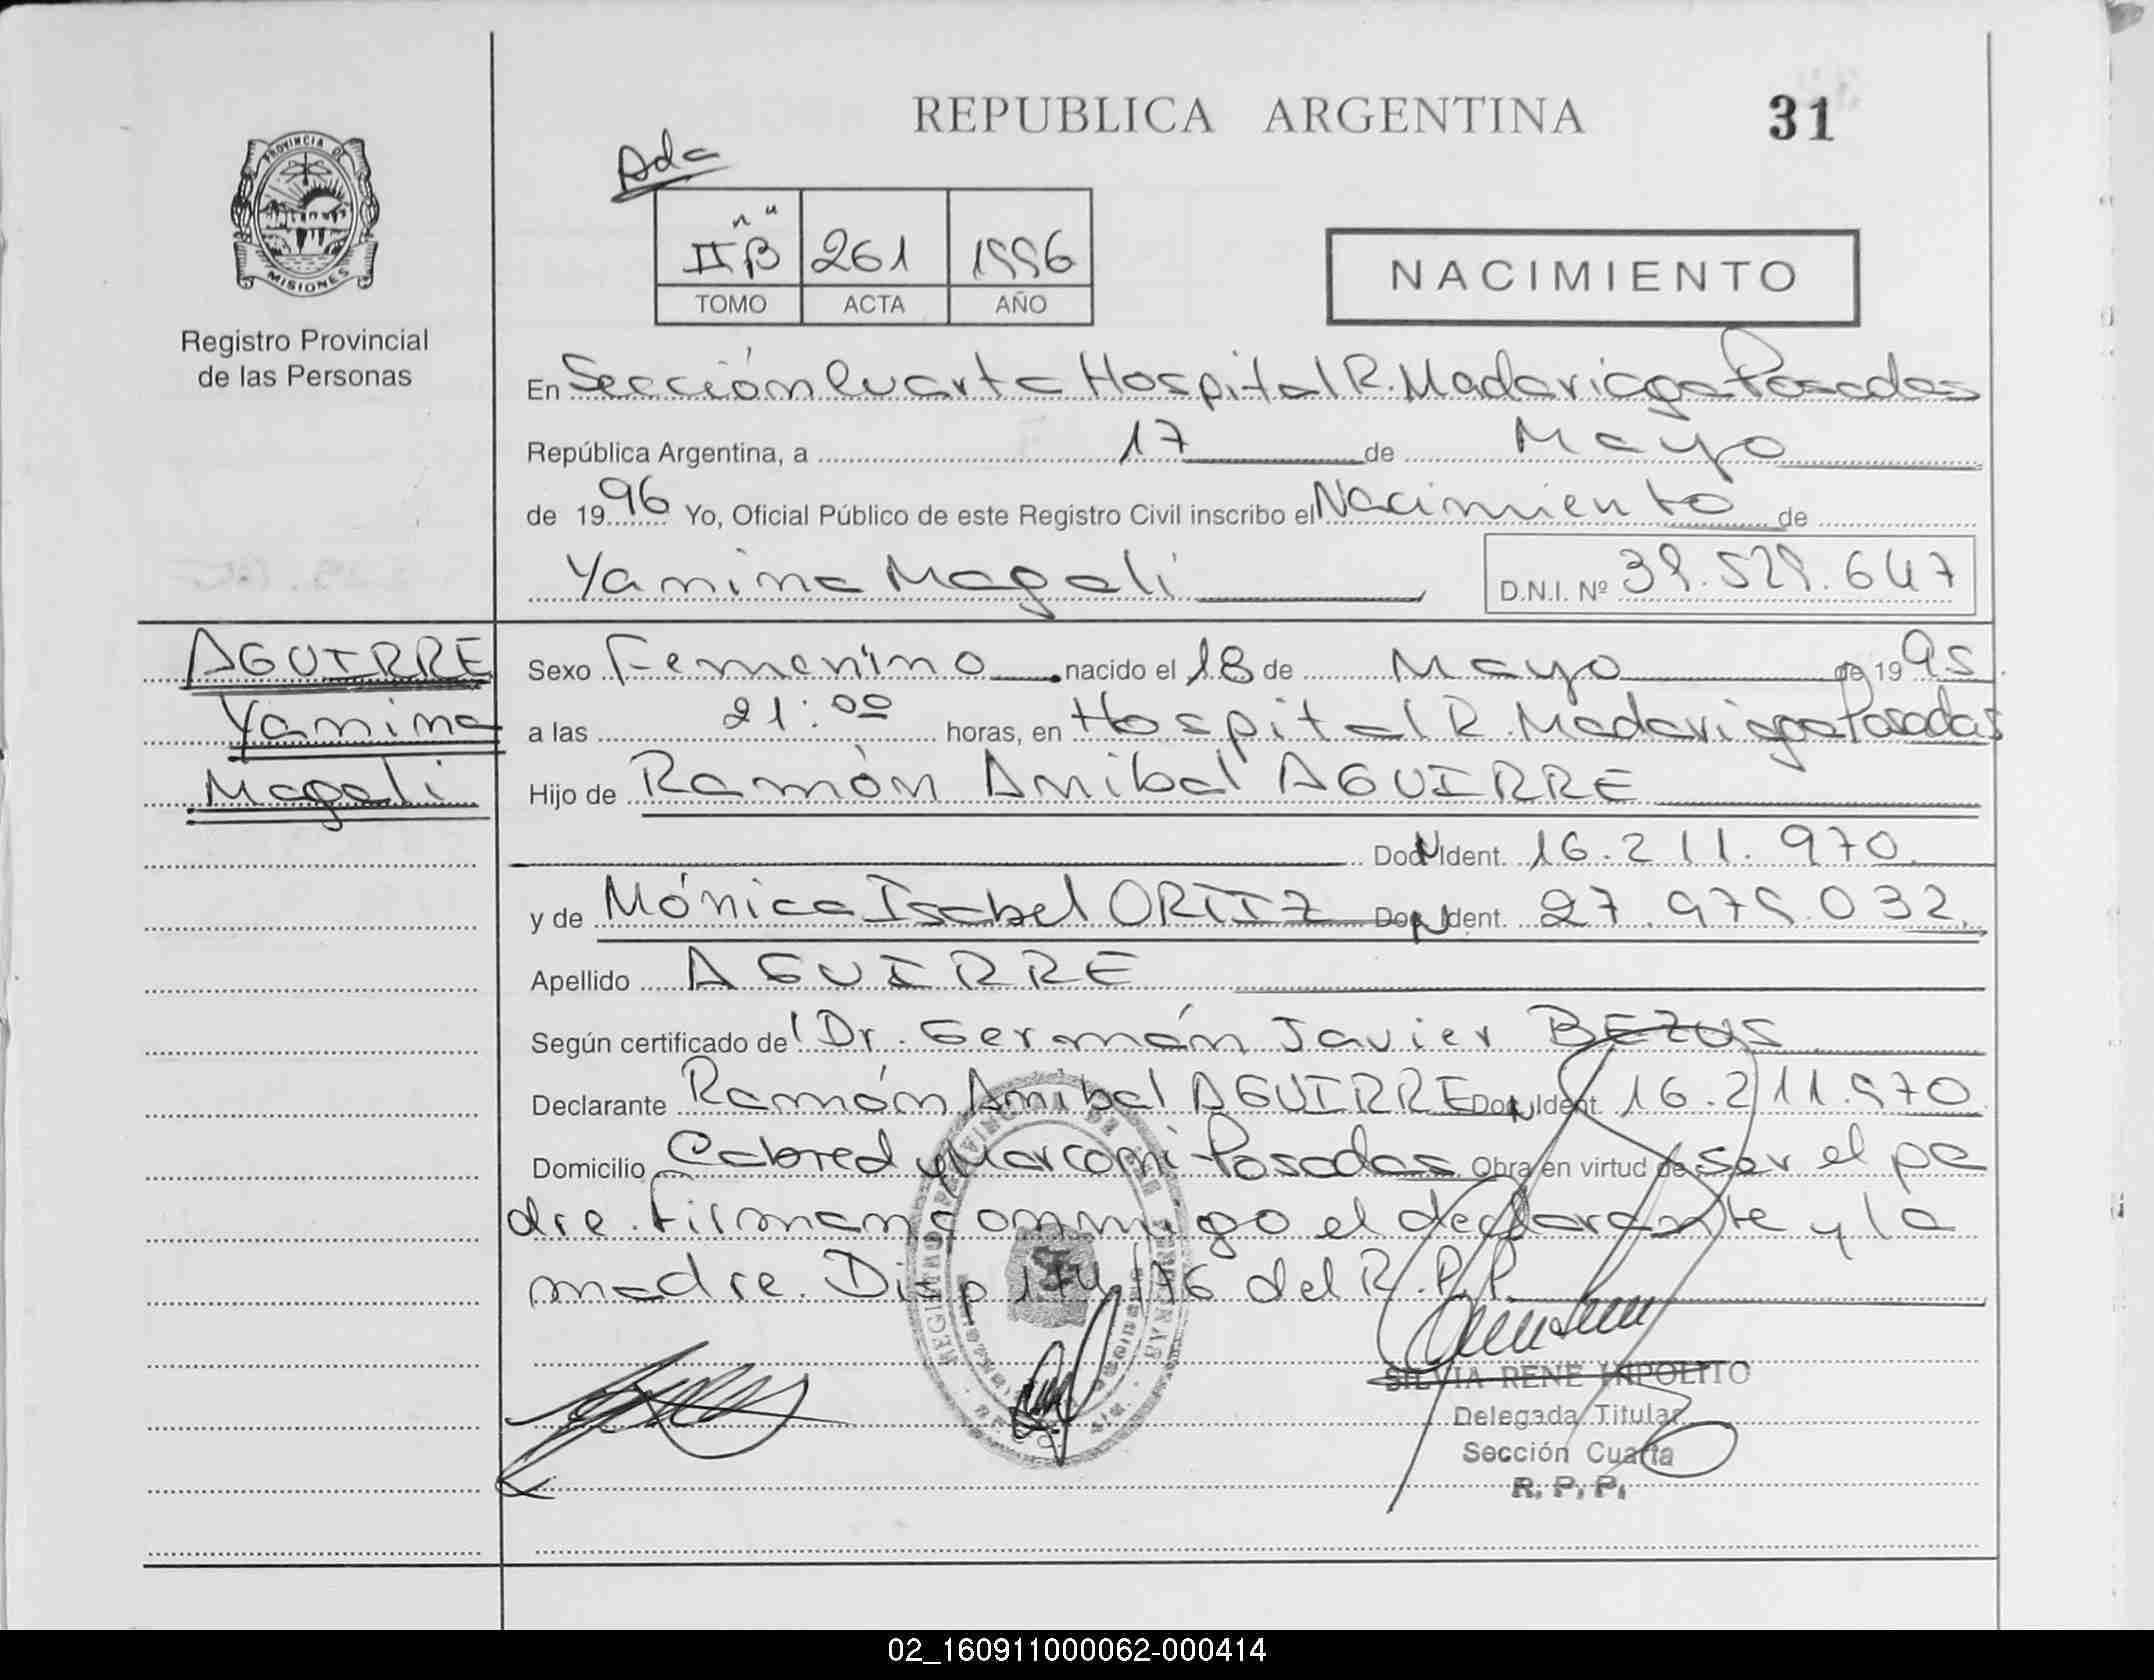 REPUBLICA ARGENTINA
31
PROVINCIA DE
MISIONES
Registro Provincial
de las Personas
Ada
II "B" 261 1996
TOMO ACTA AÑO
NACIMIENTO
En Sección Cuarta Hospital R. Madariaga Posadas
República Argentina, a 17 de Mayo
de 1996 Yo, Oficial Público de este Registro Civil inscribo el Nacimiento de
Yanina Magali D.N.I. Nº 39.529.647
AGUIRRE
Yanina
Magali
Sexo Femenino nacido el 18 de Mayo de 1995.
a las 21:00 horas, en Hospital R. Madariaga Posadas
Hijo de Ramón Anibal AGUIRRE
Doc. Ident. 16.211.970.
y de Mónica Isabel ORTIZ Doc. Ident. 27.979.032.
Apellido AGUIRRE
Según certificado del Dr. Germán Javier BEZUS
Declarante Ramón Anibal AGUIRRE Doc. Ident. 16.211.970
Domicilio Cabred y Marconi Posadas Obra en virtud de ser el pa
dre. Firman conmigo el declarante y la
madre. Disp 174/76 del R.P.P.
SILVIA RENE HIPOLITO
Delegada Titular
Sección Cuarta
R. P. P.
02_160911000062-000414